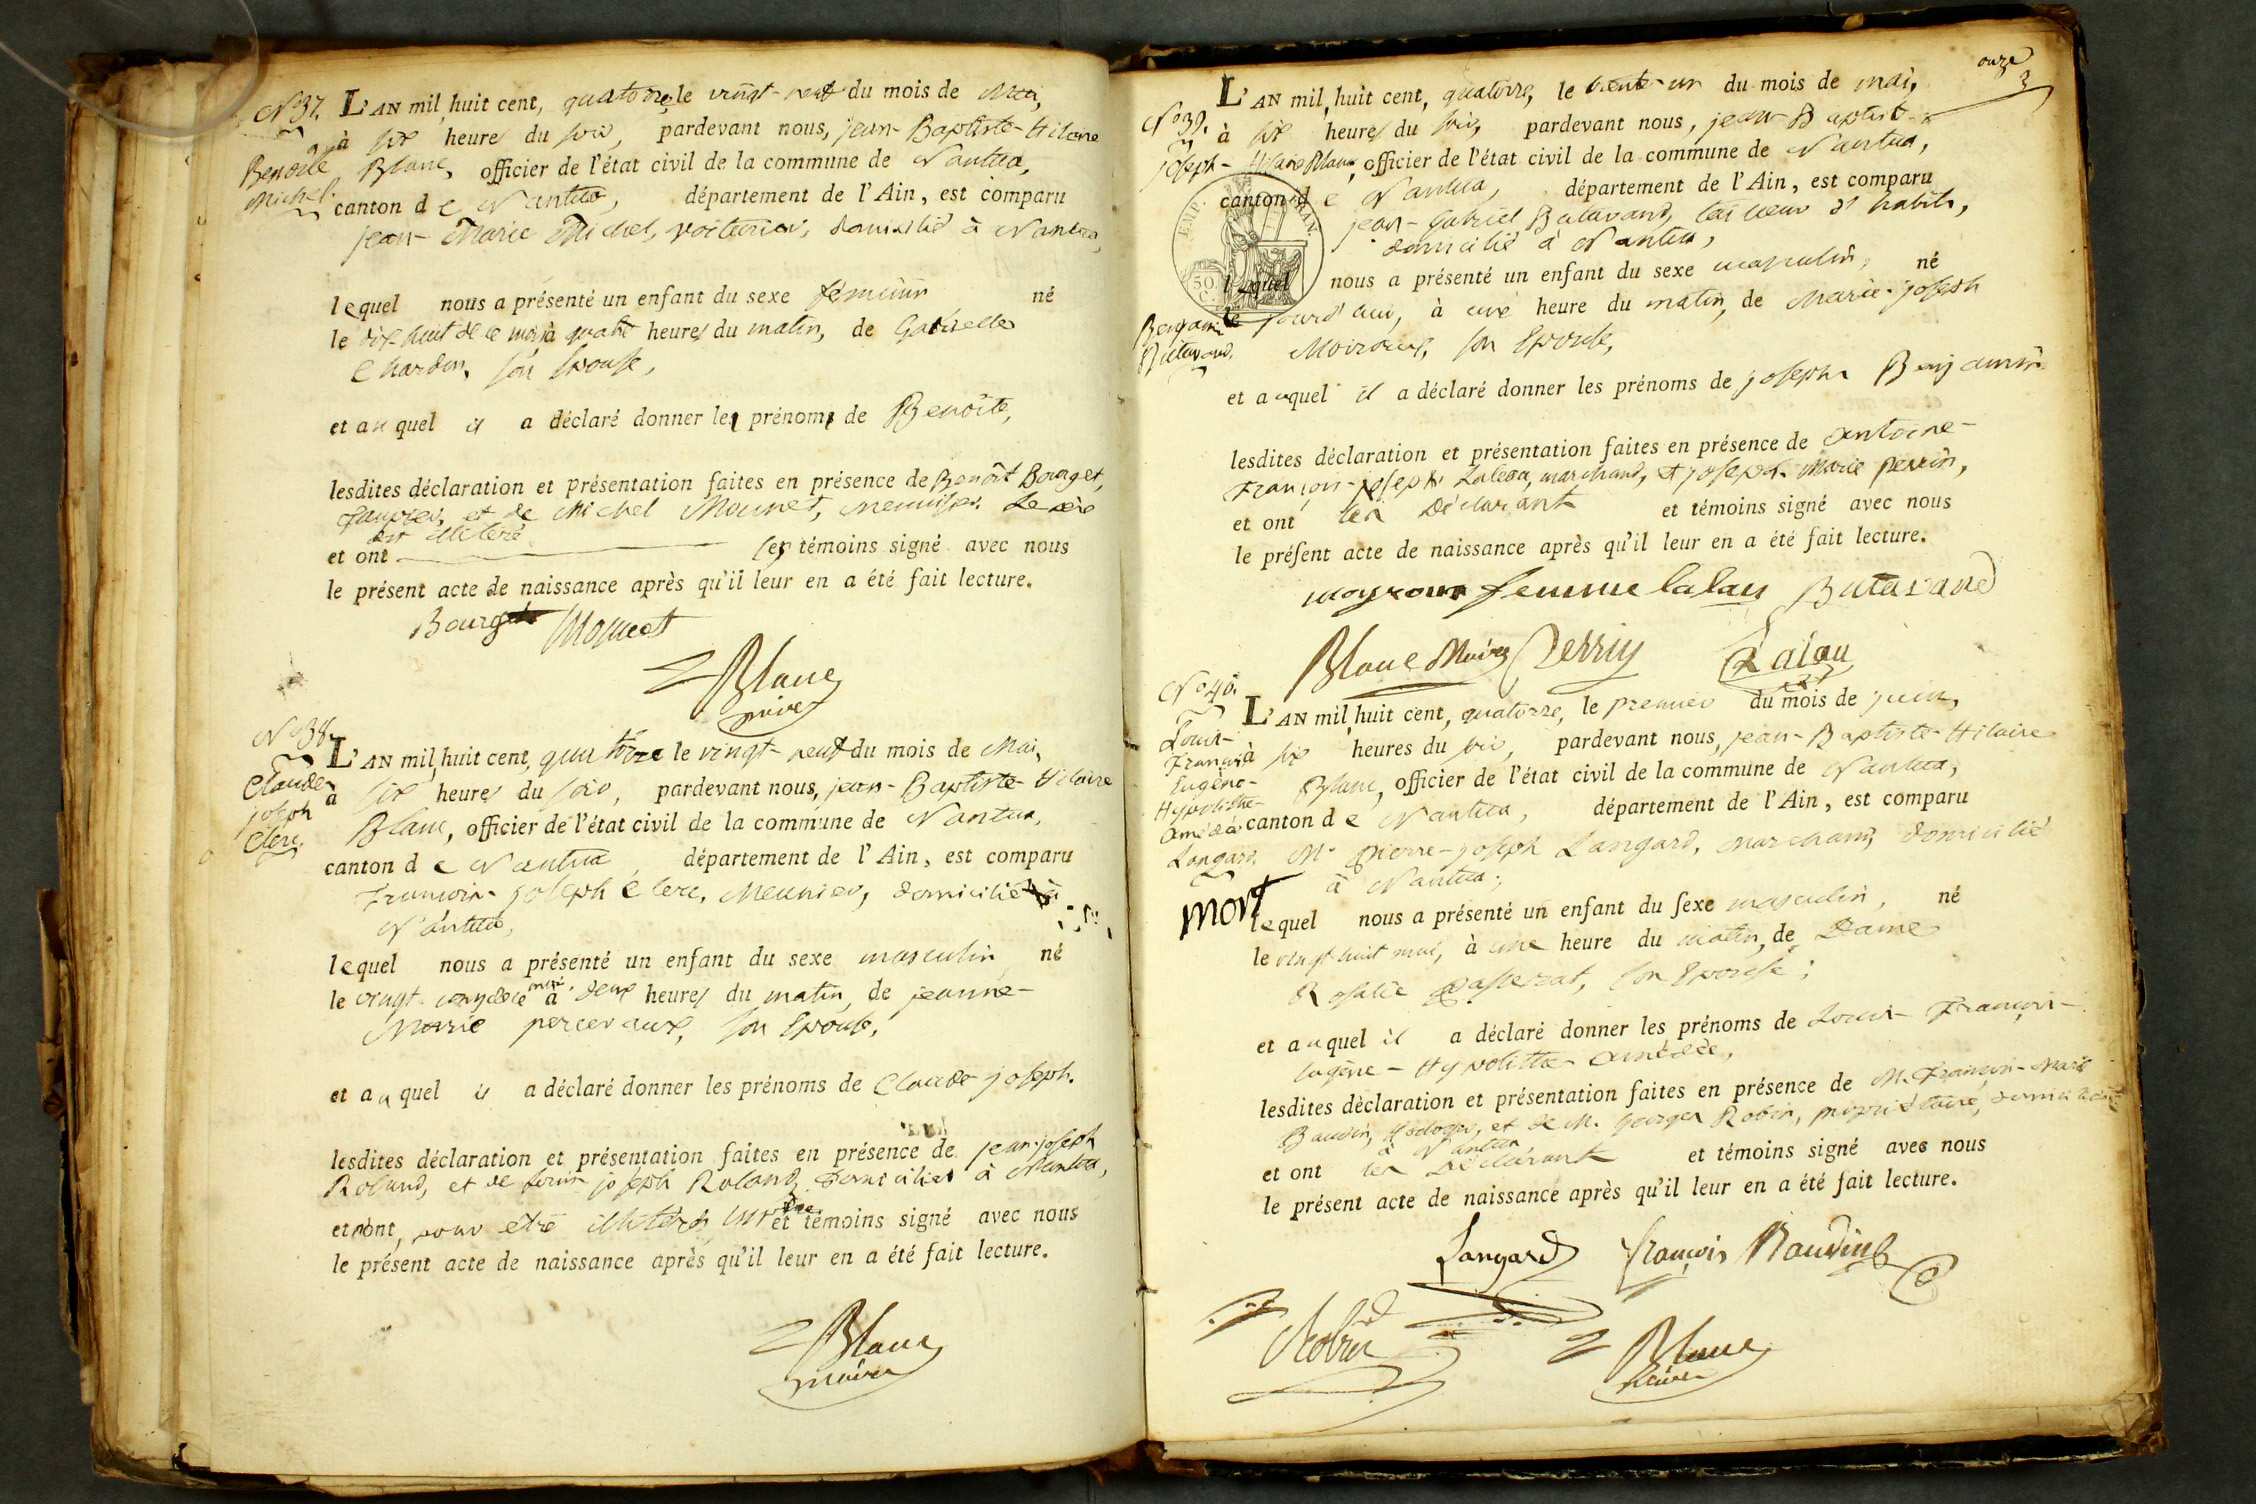 N° 37.
Benoite
Michel.
L'AN mil huit cent, quatorze, le vingt-neuf du mois de Mai,
à six heures du soir, pardevant nous, jean-Baptiste-Hilaire
Blanc, officier de l'état civil de la commune de Nantua,
canton de Nantua, département de l'Ain, est comparu
jean-Marie Michel, voiturier, domicilié à Nantua,
lequel nous a présenté un enfant du sexe féminin né
le dix-huit de ce mois à quatre heures du matin, de Gabrielle
Chardon, son Epouse,
et auquel il a déclaré donner les prénoms de Benoite,
lesdites déclaration et présentation faites en présence de Benoît Bourget,
et de Michel Mounet, menuisier. Le père
est illiteré
et ont les témoins signé avec nous
le présent acte de naissance après qu'il leur en a été fait lecture.
Bourget Mounet
Blanc
maire
N° 38.
Claude
joseph
Clerc.
L'AN mil huit cent, quatorze le vingt-neuf du mois de Mai,
à six heures du soir, pardevant nous, jean-Baptiste-Hilaire
Blanc, officier de l'état civil de la commune de Nantua,
canton de Nantua département de l'Ain, est comparu
François-joseph Clerc, Meunier, domicilié à
Nantua,
lequel nous a présenté un enfant du sexe masculin né
le vingt mai à deux heures du matin, de jeanne-
Marie percevaux, son Epouse,
et auquel il a déclaré donner les prénoms de Claude joseph.
lesdites déclaration et présentation faites en présence de jean-joseph
Roland, et de Louis joseph Roland, domiciliés à Nantua,
et n'ont, pour être illiterés, et témoins signé avec nous
le présent acte de naissance après qu'il leur en a été fait lecture.
Blanc
maire
onze
3
N° 39.
joseph-
Benjamin
Butavand.
L'AN mil huit cent, quatorze, le trente-un du mois de mai,
à six heures du soir, pardevant nous, jean-Baptiste-
Hilaire Blanc, officier de l'état civil de la commune de Nantua,
canton de Nantua, département de l'Ain, est comparu
jean-Gabriel Butavand, tailleur d'habits,
domicilié à Nantua,
EMP. FRAN.
50
C.
lequel nous a présenté un enfant du sexe masculin, né
le jourd'hui, à une heure du matin, de Marie-joseph
Moiroux, son Epouse,
et auquel il a déclaré donner les prénoms de joseph Benjamin
lesdites déclaration et présentation faites en présence de antoine-
François-joseph Lalau, marchand, et joseph-Marie perrin,
et ont les Déclarant et témoins signé avec nous
le présent acte de naissance après qu'il leur en a été fait lecture.
moyroux femme lalau Butavand
Blanc Maire Perrin Lalau
N° 40.
Louis-
François
Eugène-
Hypolithe-
Amédée
Langard.
mort
L'AN mil huit cent, quatorze, le premier du mois de juin,
à six heures du soir, pardevant nous, jean-Baptiste-Hilaire
Blanc, officier de l'état civil de la commune de Nantua,
canton de Nantua, département de l'Ain, est comparu
M. Pierre-joseph Langard, marchand, domicilié
à Nantua;
lequel nous a présenté un enfant du sexe masculin, né
le vingt-huit mai, à une heure du matin, de Dame
Rosalie Passerat, son Epouse;
et auquel il a déclaré donner les prénoms de Louis-François-
Eugène-Hypolitte-amédée,
lesdites déclaration et présentation faites en présence de M. François-Marie
Baudin, et de M. Georges Robin, propriétaire, domiciliés
à Nantua
et ont les Déclarant et témoins signé avec nous
le présent acte de naissance après qu'il leur en a été fait lecture.
Langard françois Baudin
Robin Blanc
maire